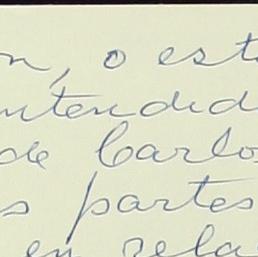 n, o est
ntendid
de Carlo
s partes
en rela